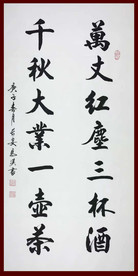 萬丈紅塵三杯酒
千秋大業一壺茶
庚子春月